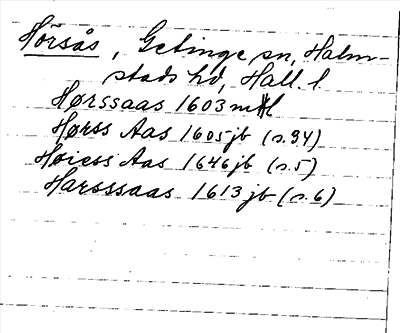 Hörsås, Getinge sn, Halm-
stads hd, Hall. l.
Hørssaas 1603 mtl
Hørss Aas 1605 jb (s. 94)
Høiess Aas 1646 jb (s. 5)
Harsssaas 1613 jb (s. 6)